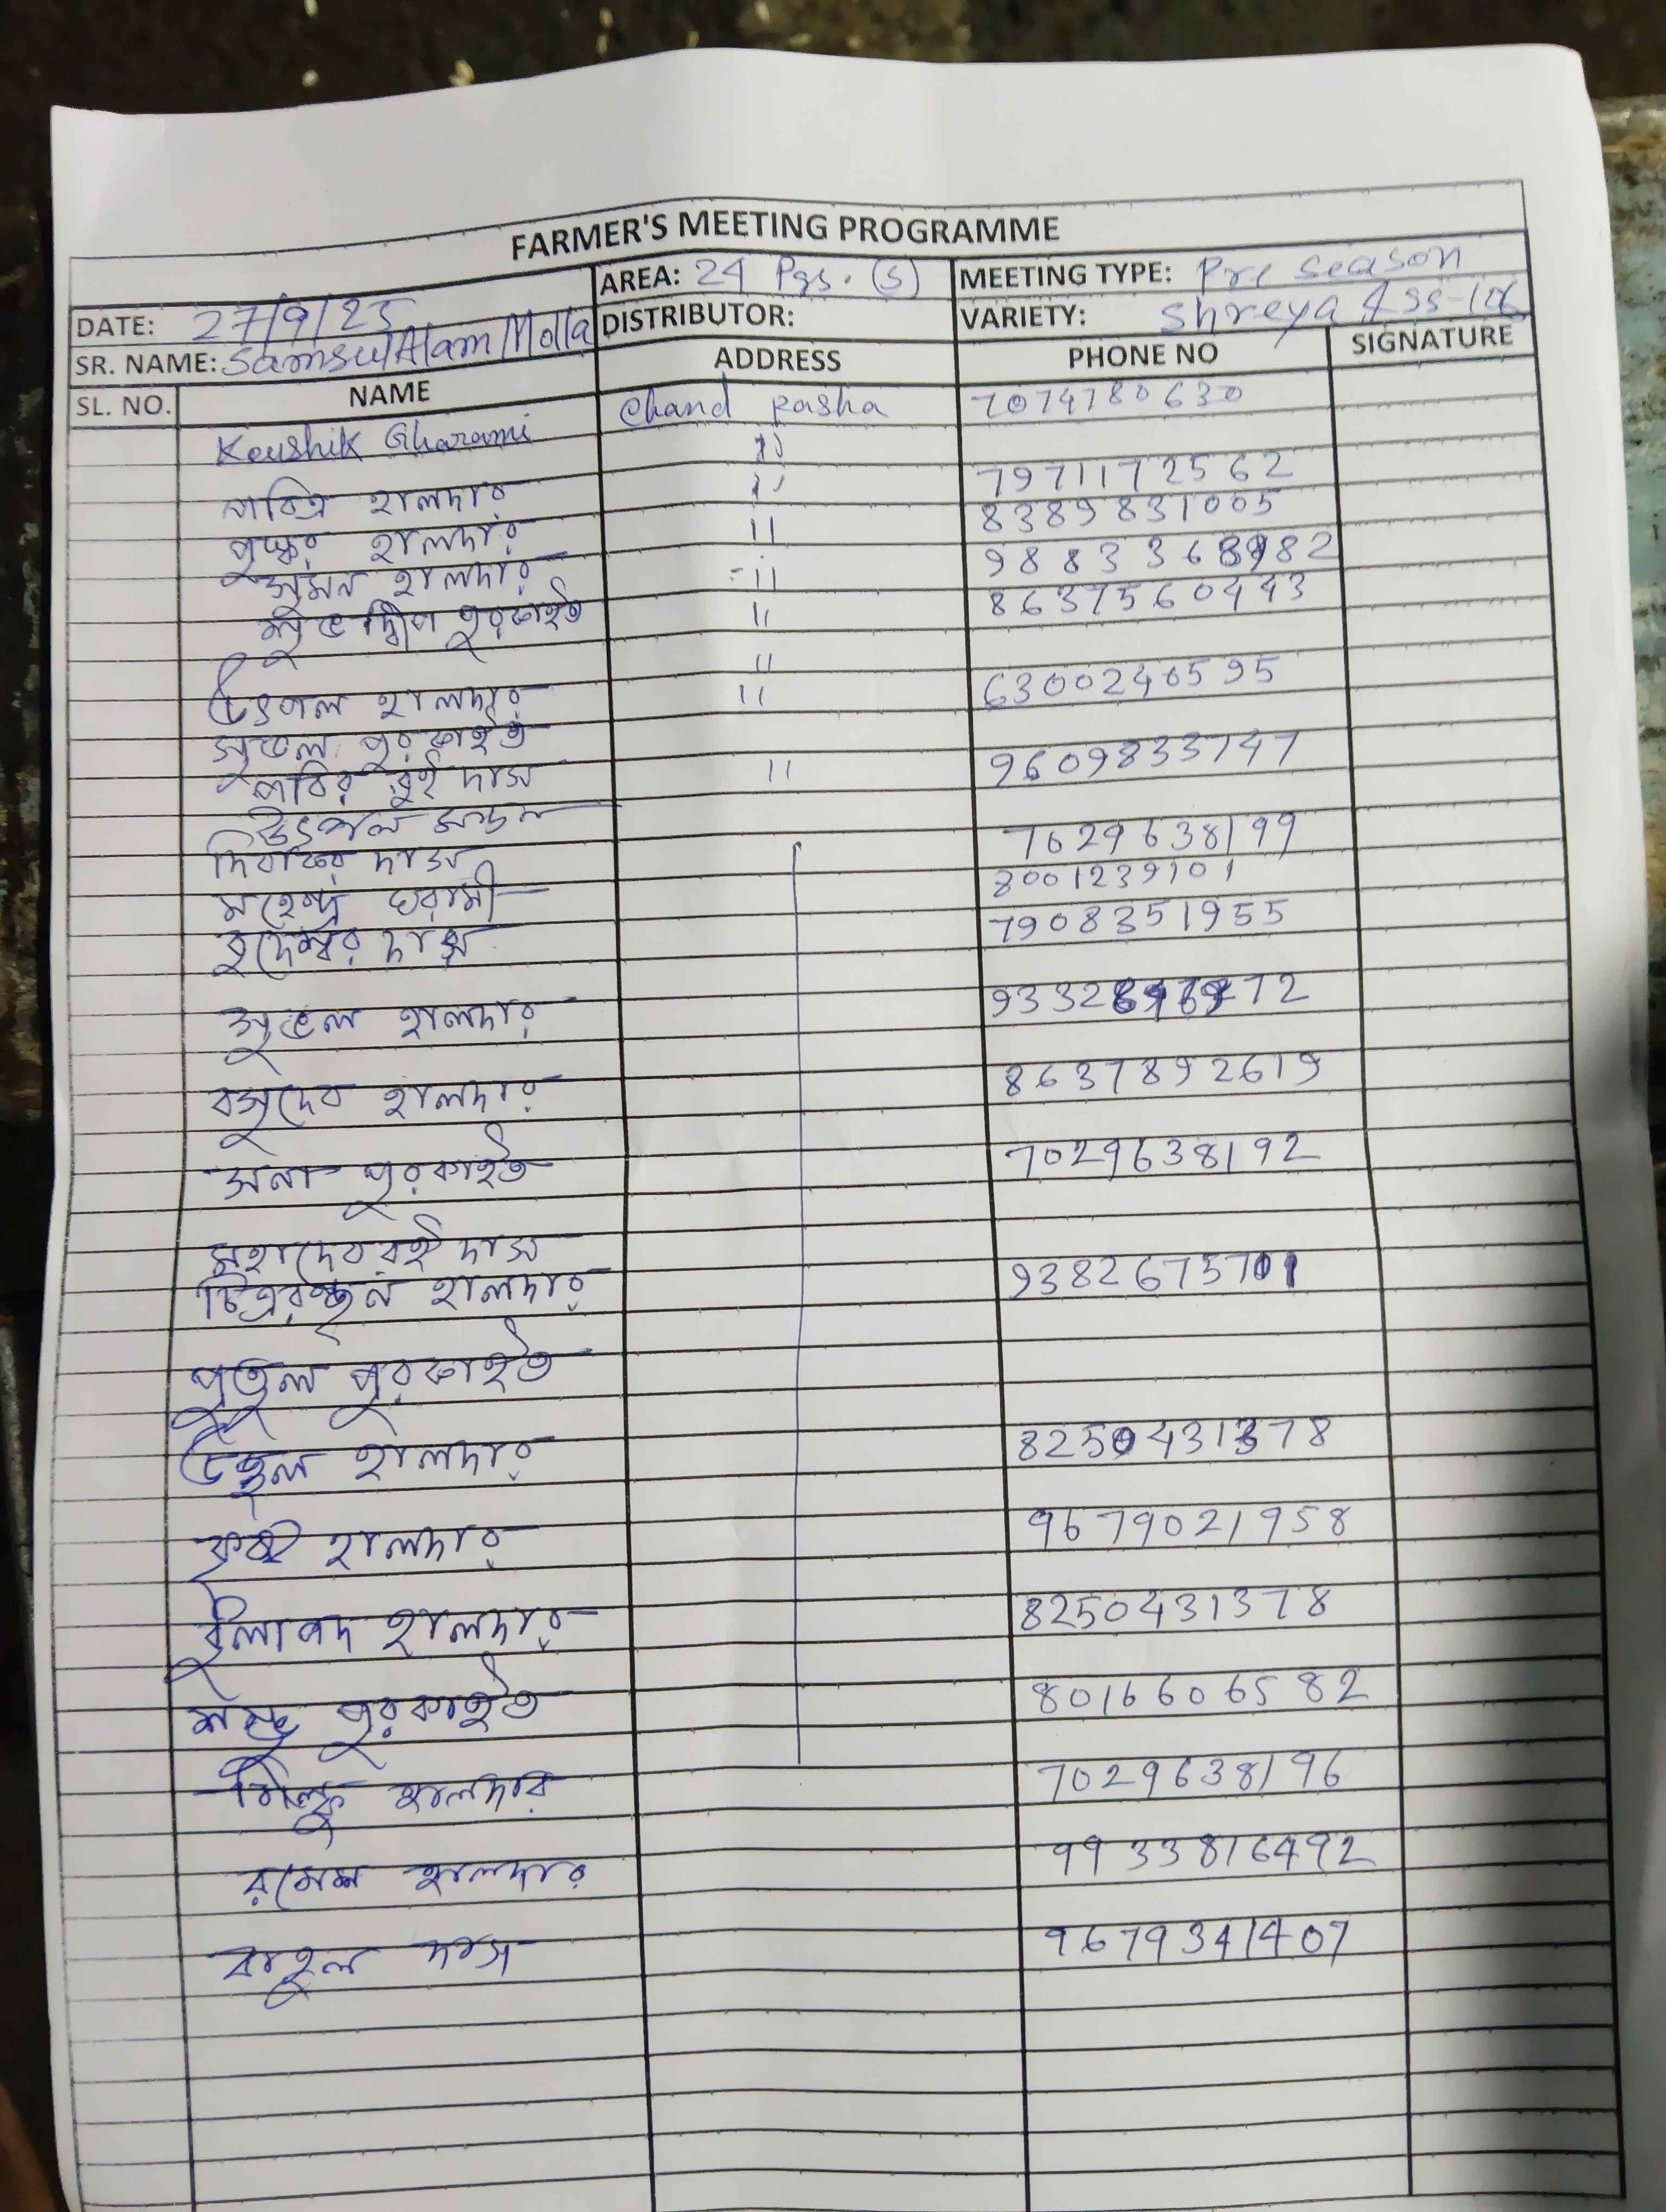 FARMER'S MEETING PROGRAMME
AREA: 24 Pgs. (S) MEETING TYPE: Pre season
DATE: 27/9/25 DISTRIBUTOR: VARIETY: Shreya & SS-
SR. NAME: Samsul Alam Molla
SL. NO. NAME ADDRESS PHONE NO SIGNATURE
Koushik Gharami Chand pasha 7074780630
"
পবিত্র হালদার " 7971172562
পুস্কর হালদার " 8389831005
সুমন হালদার " 9883368982
শুভদ্বীপ পুরকাইত " 8637560443
"
উৎপল হালদার " 6300240595
সুভল পুরকাইত
পবির রুই দাস " 9609833747
উৎপল মন্ডল
দিবাকর দাস 7629638199
মহেন্দ্র ঘরামী 8001239101
হৃদেশ্বর দাস 7908351955
সুভল হালদার
বসুদেব হালদার 8637892619
সনা পুরকাইত 7029638192
মহাদেব রুই দাস
চিত্ররঞ্জন হালদার 9382675701
পুতুল পুরকাইত
উজ্জ্বল হালদার 8250431378
কৃষ্ট হালদার 9679021958
তুলাপদ হালদার 8250431378
শম্ভু পুরকাইত 8016606582
পিন্টু হালদার 7029638196
রমেশ হালদার 9933816492
রাহুল দাস 9679341407